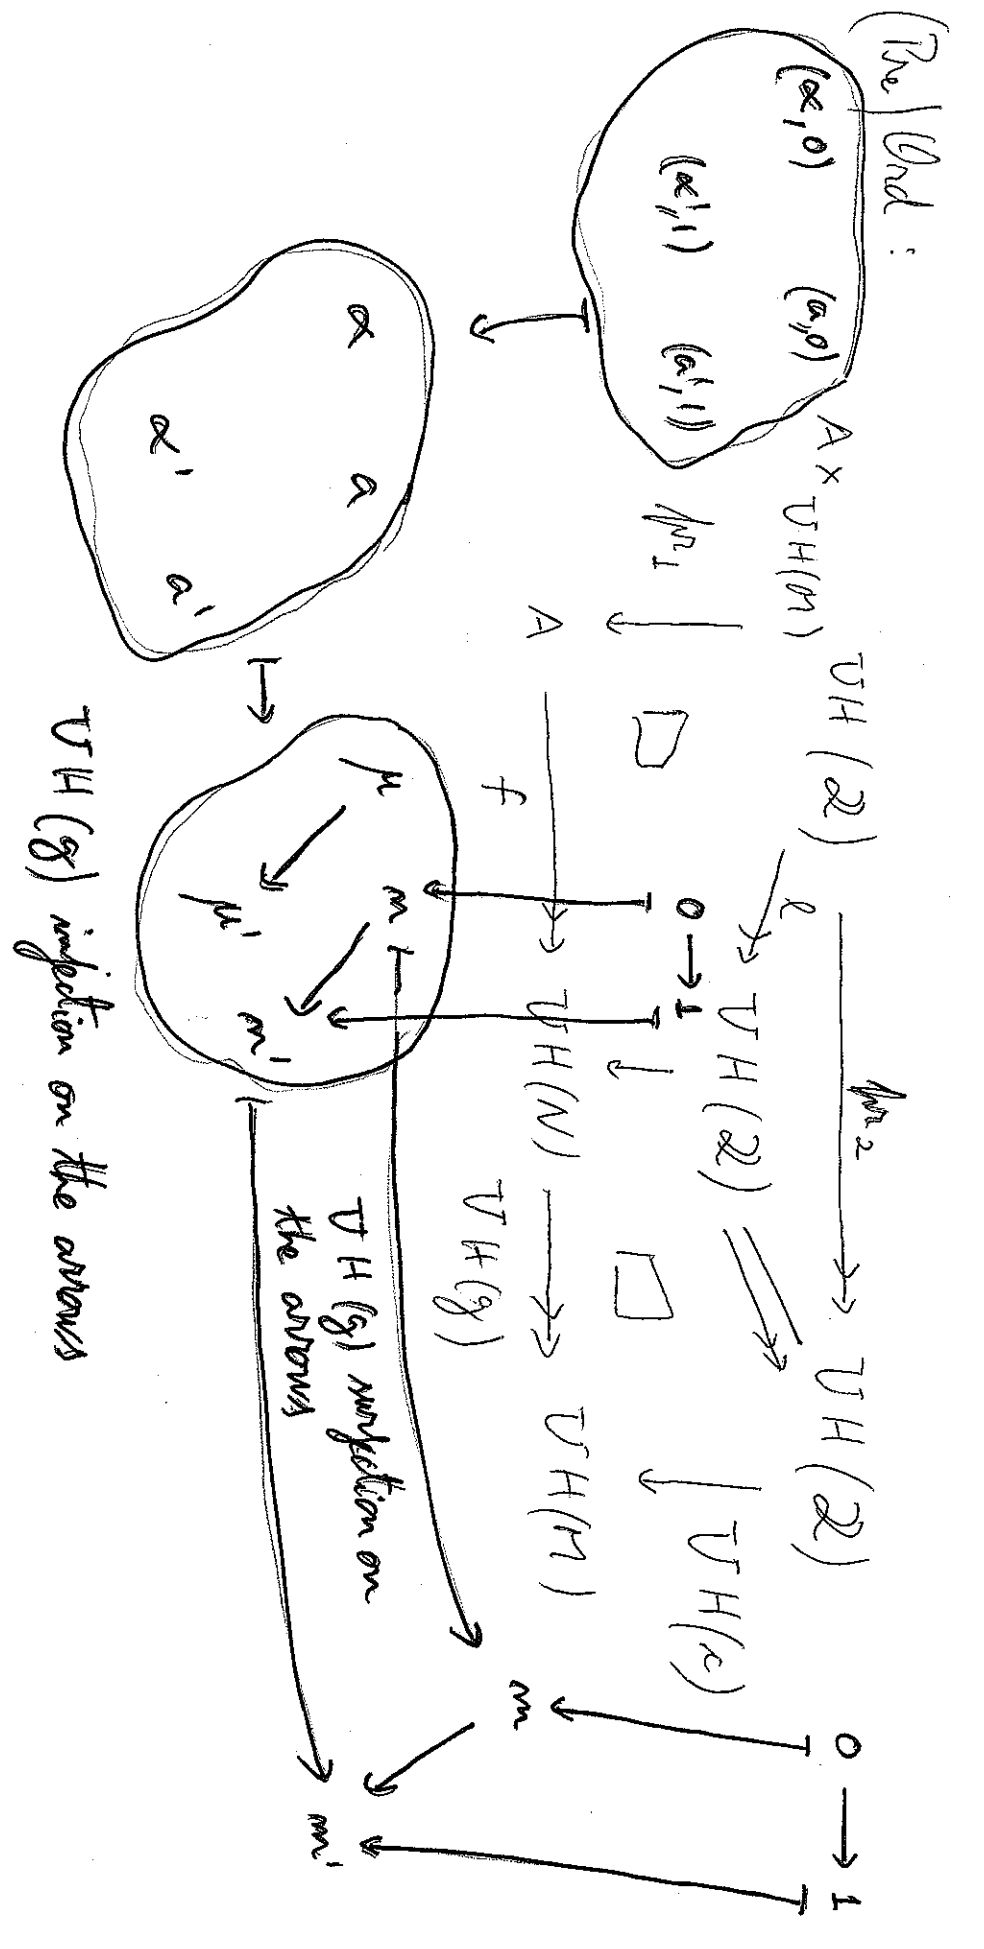 (Pre) Ord :
(α, 0) (a, 0)
(α', 1) (a', 1)
A × UH(M)
UH(2)
pr₂
UH(2)
0 → 1
pr₁
l
0 → 1
UH(2)
UH(x)
A
f
UH(N)
UH(g)
UH(M)
α a
α' a'
μ m
μ' m'
m
m'
UH(g) surjection on
the arrows
UH(g) injection on the arrows